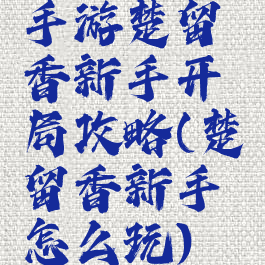 手游楚留
香新手开
局攻略(楚
留香新手
怎么玩)